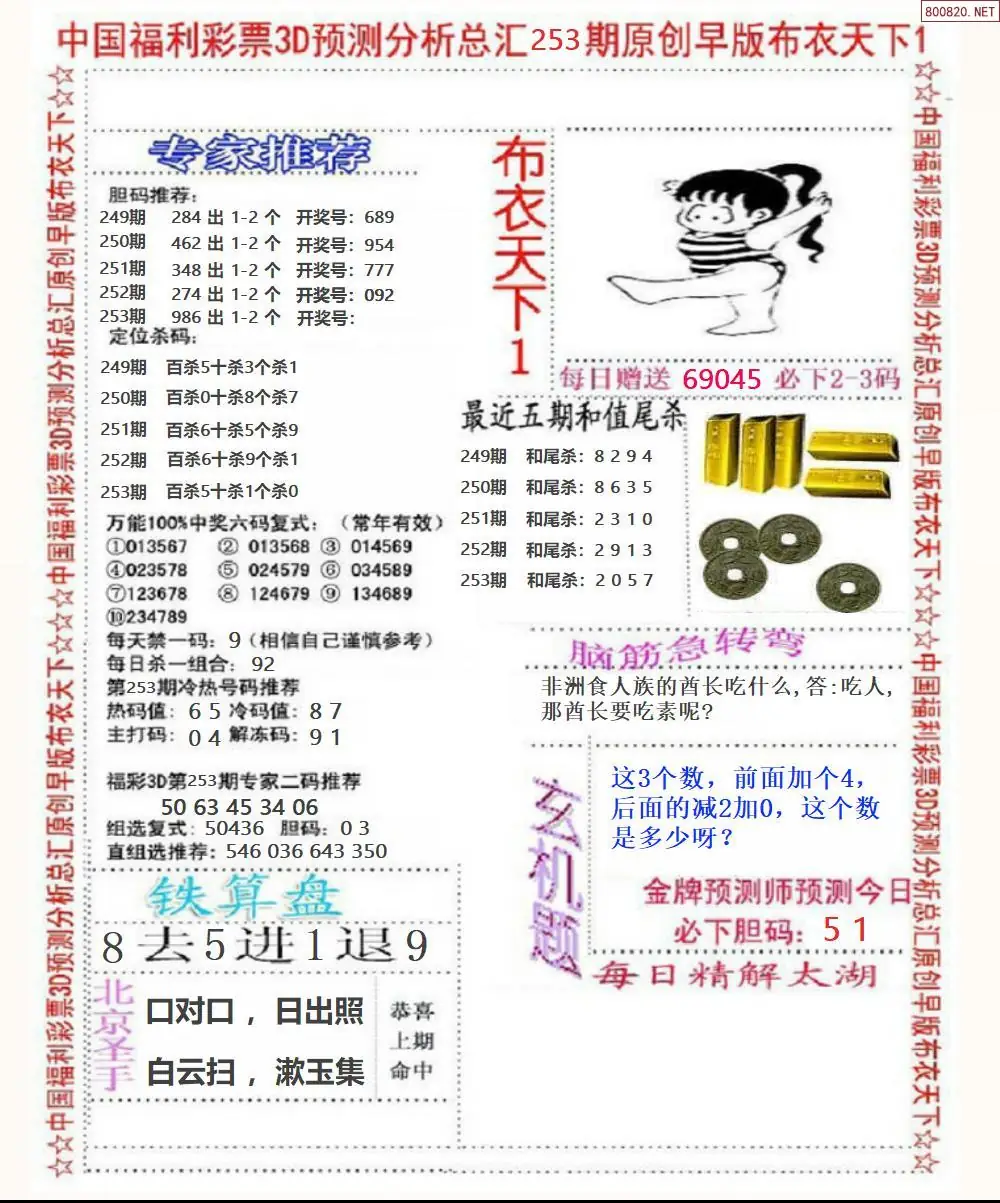 800820.NET
中国福利彩票3D预测分析总汇253期原创早版布衣天下1
☆☆中国福利彩票3D预测分析总汇原创早版布衣天下☆☆☆中国福利彩票3D预测分析总汇原创早版布衣天下☆☆
专家推荐
胆码推荐：
249期 284 出 1-2 个 开奖号：689
250期 462 出 1-2 个 开奖号：954
251期 348 出 1-2 个 开奖号：777
252期 274 出 1-2 个 开奖号：092
253期 986 出 1-2 个 开奖号：
定位杀码：
249期 百杀5十杀3个杀1
250期 百杀0十杀8个杀7
251期 百杀6十杀5个杀9
252期 百杀6十杀9个杀1
253期 百杀5十杀1个杀0
万能100%中奖六码复式：（常年有效）
①013567 ② 013568 ③ 014569
④023578 ⑤ 024579 ⑥ 034589
⑦123678 ⑧ 124679 ⑨ 134689
⑩234789
每天禁一码：9（相信自己谨慎参考）
每日杀一组合：92
第253期冷热号码推荐
热码值：6 5 冷码值：8 7
主打码：0 4 解冻码：9 1
福彩3D第253期专家二码推荐
50 63 45 34 06
组选复式：50436 胆码：0 3
直组选推荐：546 036 643 350
铁算盘
8去5进1退9
北京圣手
口对口，日出照
白云扫，漱玉集
恭喜
上期
命中
布衣天下1
每日赠送 69045 必下2-3码
最近五期和值尾杀
249期 和尾杀：8 2 9 4
250期 和尾杀：8 6 3 5
251期 和尾杀：2 3 1 0
252期 和尾杀：2 9 1 3
253期 和尾杀：2 0 5 7
脑筋急转弯
非洲食人族的酋长吃什么,答:吃人,
那酋长要吃素呢?
玄机题
这3个数，前面加个4，
后面的减2加0，这个数
是多少呀？
金牌预测师预测今日
必下胆码：5 1
每日精解太湖
☆☆中国福利彩票3D预测分析总汇原创早版布衣天下☆☆☆中国福利彩票3D预测分析总汇原创早版布衣天下☆☆